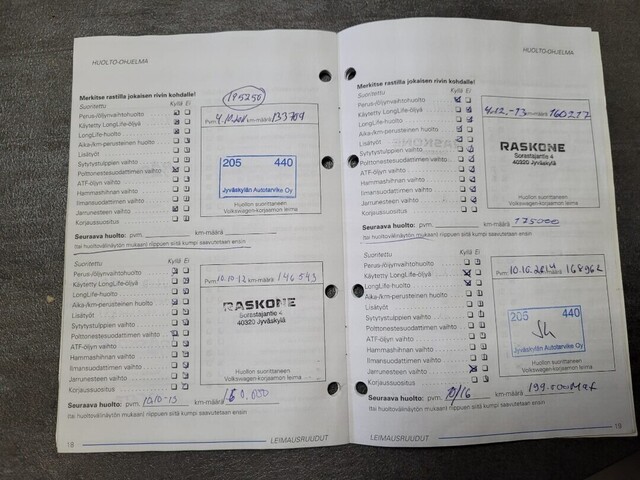 HUOLTO-OHJELMA
Merkitse rastilla jokaisen rivin kohdalle!
195250
Suoritettu Kyllä Ei
Perus-/öljynvaihtohuolto
Käytetty LongLife-öljyä
LongLife-huolto
Aika-/km-perusteinen huolto
Lisätyöt
Sytytystulppien vaihto
Polttonestesuodattimen vaihto
ATF-öljyn vaihto
Hammashihnan vaihto
Ilmansuodattimen vaihto
Jarrunesteen vaihto
Korjaussuositus
Pvm. km-määrä 133704
205 440
Jyväskylän Autotarvike Oy
Huollon suorittaneen
Volkswagen-korjaamon leima
Seuraava huolto: pvm. km-määrä
(tai huoltovälinäytön mukaan) riippuen siitä kumpi saavutetaan ensin
Suoritettu Kyllä Ei
Perus-/öljynvaihtohuolto
Käytetty LongLife-öljyä
LongLife-huolto
Aika-/km-perusteinen huolto
Lisätyöt
Sytytystulppien vaihto
Polttonestesuodattimen vaihto
ATF-öljyn vaihto
Hammashihnan vaihto
Ilmansuodattimen vaihto
Jarrunesteen vaihto
Korjaussuositus
Pvm. 10.10.12 km-määrä 146543
RASKONE
Sorastajantie 4
40320 Jyväskylä
Huollon suorittaneen
Volkswagen-korjaamon leima
Seuraava huolto: pvm. 10.10-13 km-määrä 160.000
(tai huoltovälinäytön mukaan) riippuen siitä kumpi saavutetaan ensin
18 LEIMAUSRUUDUT
HUOLTO-OHJELMA
Merkitse rastilla jokaisen rivin kohdalle!
Suoritettu Kyllä Ei
Perus-/öljynvaihtohuolto
Käytetty LongLife-öljyä
LongLife-huolto
Aika-/km-perusteinen huolto
Lisätyöt
Sytytystulppien vaihto
Polttonestesuodattimen vaihto
ATF-öljyn vaihto
Hammashihnan vaihto
Ilmansuodattimen vaihto
Jarrunesteen vaihto
Korjaussuositus
Pvm. 4.12.-13 km-määrä 160217
RASKONE
Sorastajantie 4
40320 Jyväskylä
Huollon suorittaneen
Volkswagen-korjaamon leima
Seuraava huolto: pvm. km-määrä 175000
(tai huoltovälinäytön mukaan) riippuen siitä kumpi saavutetaan ensin
Suoritettu Kyllä Ei
Perus-/öljynvaihtohuolto
Käytetty LongLife-öljyä
LongLife-huolto
Aika-/km-perusteinen huolto
Lisätyöt
Sytytystulppien vaihto
Polttonestesuodattimen vaihto
ATF-öljyn vaihto
Hammashihnan vaihto
Ilmansuodattimen vaihto
Jarrunesteen vaihto
Korjaussuositus
Pvm. 10.10.2014 km-määrä 168962
205 440
Jyväskylän Autotarvike Oy
Huollon suorittaneen
Volkswagen-korjaamon leima
Seuraava huolto: pvm. 10/16 km-määrä
(tai huoltovälinäytön mukaan) riippuen siitä kumpi saavutetaan ensin
LEIMAUSRUUDUT 19